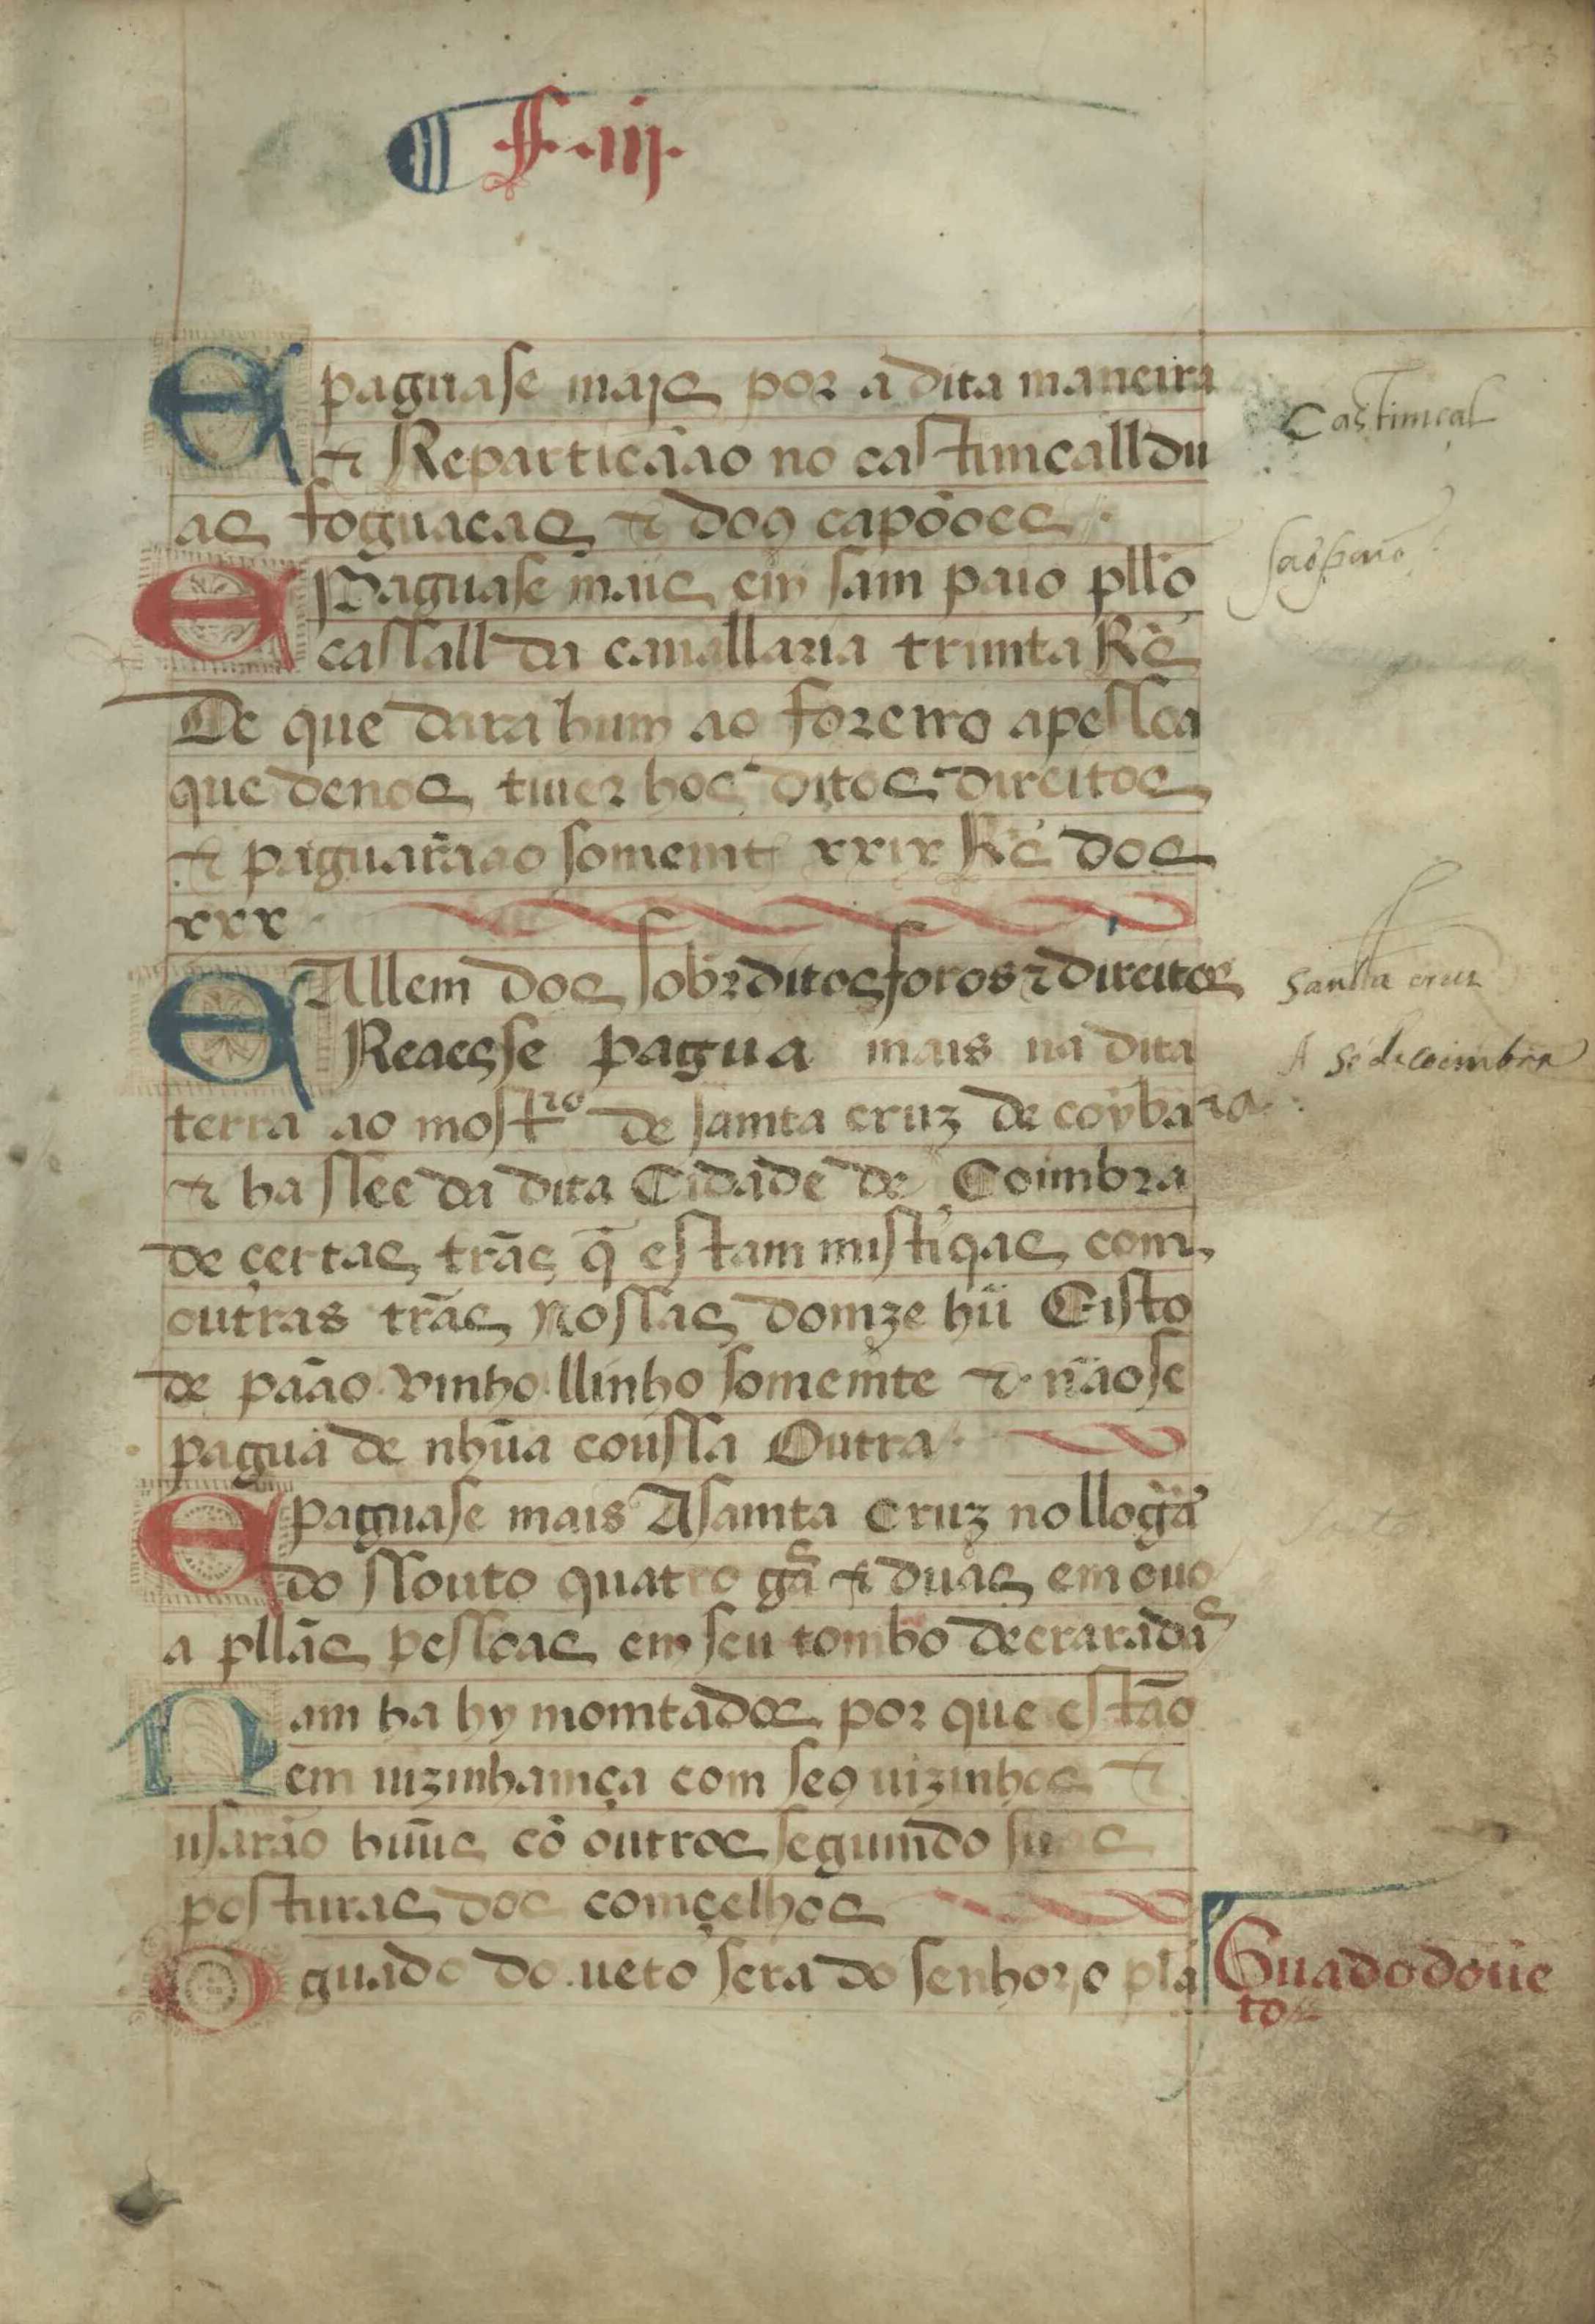 ¶ F. iij.
E paguase majs por a dita maneira
⁊ Reparticãao no castimcall du
as foguacas ⁊ doꝯ capõoes
Castimcal
E Paguase mais em sam paio pllo
sãopaio
cassall da cauallaria trimta Rẽs
De que dara hum ao foreiro apessoa
que denos tiuer hos ditos direitos
⁊ paguarãao soment xxix Rẽs dos
xxx
E Allem dos sobrditos foros ⁊ direitos
Santa cruz
Reaesse pagua mais na dita
A sé de coimbra
terra ao mostro de samta cruz de coỹbara
⁊ ha ssee da dita Cidade de Coimbra
de çertas trãs q̃ estam mistiqas com
outras trãs nossas domze hũ Cisto
de pãao vinho llinho somemte ⁊ nãose
pagua de nhũa coussa Outra
E paguase mais Asamta Cruz no llogar
do ssouto quatro gas ⁊ duas em ouo
a pllãs pessoas em seu tombo decraradas
Nam ha hy momtados por que estão
em uizinhamça com seꝯ uizinhos ⁊
usarão hũus cõ outros segumdo suas
posturas dos comçelhos
O guado do ueto sera do senhorio pla
Guado do ue
to